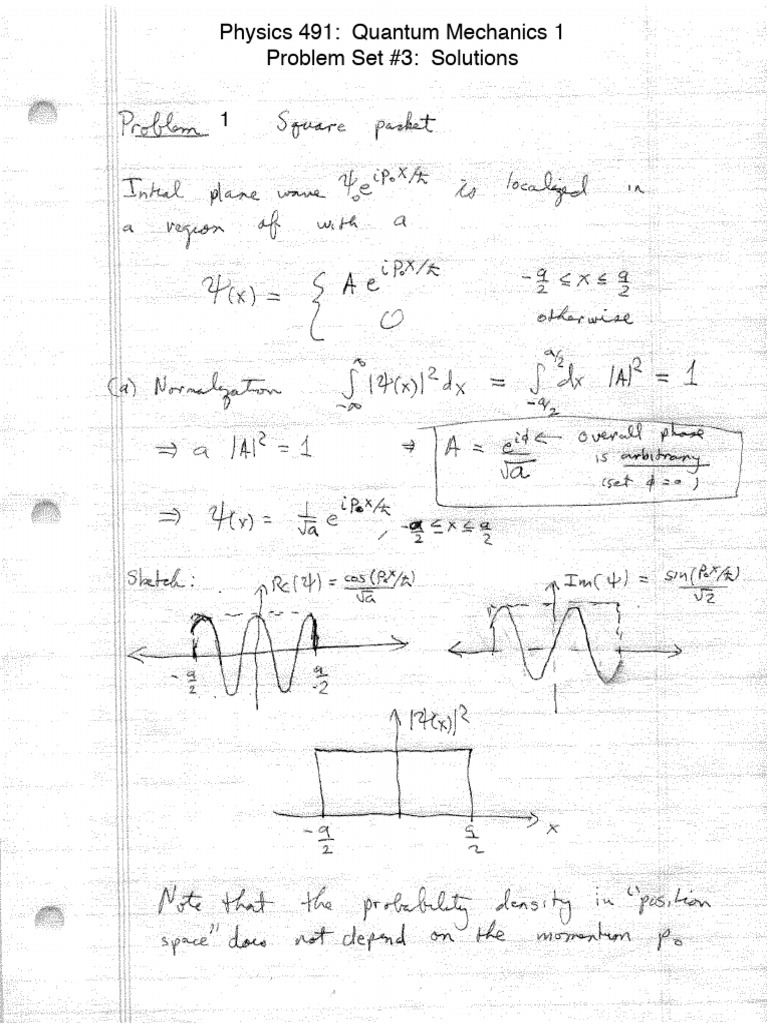 Physics 491: Quantum Mechanics 1
Problem Set #3: Solutions
Problem 1 Square packet
Initial plane wave ψ₀e^{ip₀x/ħ} is localized in
a region of with a
Ψ(x) = { A e^{ip₀x/ħ} -a/2 ≤ x ≤ a/2
0 otherwise
(a) Normalization ∫_{-∞}^{∞} |Ψ(x)|² dx = ∫_{-a/2}^{a/2} dx |A|² = 1
⇒ a |A|² = 1 ⇒ A = e^{iφ}/√a ← overall phase
is arbitrary
(set φ = 0)
⇒ Ψ(x) = 1/√a e^{ip₀x/ħ}, -a/2 ≤ x ≤ a/2
Sketch: Re(Ψ) = cos(p₀x/ħ)/√a Im(Ψ) = sin(p₀x/ħ)/√2
-a/2 a/2
|Ψ(x)|²
-a/2 a/2 x
Note that the probability density in "position
space" does not depend on the momentum p₀